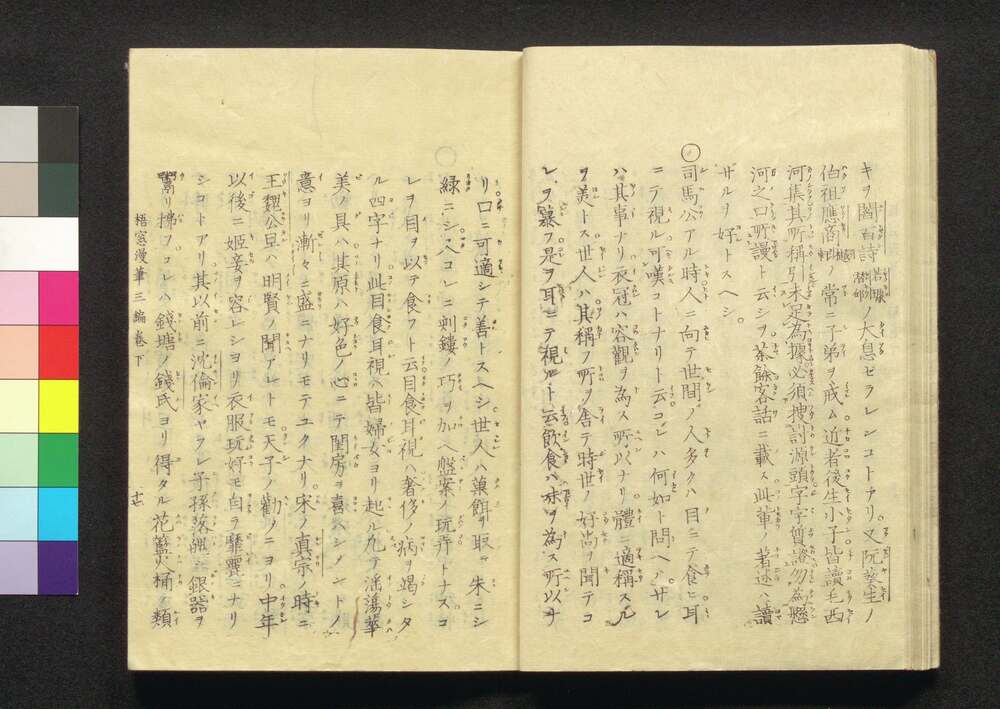 キヲ閻百詩ノ大息セラレシコトアリ又阮葵生ノ
伯祖應商ノ常ニ子弟ヲ戒ム近者後生小子皆讀毛西
河集其所稱引未足為據必須搜討源頭字字質證勿為懸
河之口所謾ト云シヲ茶餘客話ニ載ス此輩ノ著述ハ讀
ザルヲ好トスヘシ
○
司馬公アル時人ニ向テ世間ノ人多クハ目ニテ食ヒ耳
ニテ視ル可嘆コトナリト云コレハ何如ト問ヘハザレ
ハ其事ナリ衣冠ハ容觀ヲ為ス所以ナリ體ニ適稱スル
ヲ美トス世人ハ其稱ノ所ヲ舎テ時世ノ好尚ヲ聞テコ
レヲ慕フ是ヲ耳ニテ視ルト云飲食ハ味ヲ為ス所以ナ
リ口ニ可適シテ善トスヘシ世人ハ菓餌ヲ取テ朱ニシ
○
緑ニシ入コレニ剌鏤ノ巧ヲ加ヘ盤案ノ玩弄トナスコ
レヲ目ヲ以テ食フト云目食耳視ハ奢侈ノ病ヲ竭シタ
ル四字ナリ此目食耳視ハ皆婦女ヨリ起ル九テ滛蕩華
美ノ具ハ其原ハ好色ノ心ニテ閨房ヲ喜ヘシメントノ
意ヨリ漸々ニ盛ニナリモテユクナリ宋ノ真宗ノ時ニ
王魏公旦ハ明賢ノ聞アレトモ天子ノ勸ノニヨリ中年
以後ニ姬妾ヲ容レシヨリ衣服玩好モ自ラ靡麗ニナリ
シコトアリ其以前ニ沈倫家ヤラレ子孫落魄ニ銀器ヲ
鬻リ拂フコレハ錢塘ノ錢氏ヨリ得タル花籃火桶ノ類
梧窓漫筆三編巻下
十七